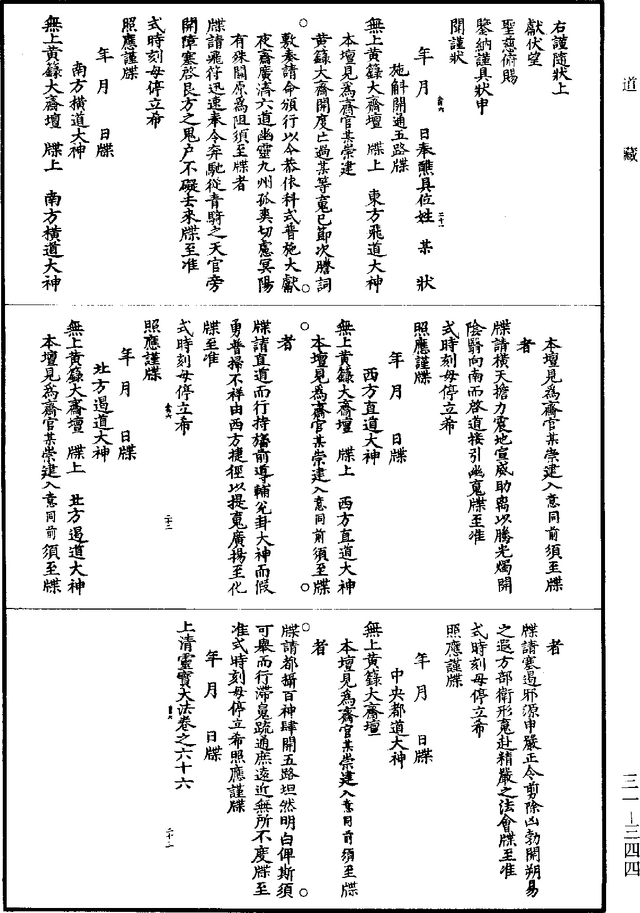 道藏
右謹隨狀上
獻伏望
聖慈俯賜
鑒納謹具狀申
聞謹狀
年 月 日奉醮具位姓 某 狀
施解開通五路牒
無上黃籙大齋壇 牒上 東方飛道大神
本壇見為齋官某崇建
黃籙大齋開度亡過某等寃已節次謄詞
敷奏請命頒行以今恭依科式普施大獻
夜齋廣濟六道幽靈九州孤爽切慮冥陽
有殊關原為阻須至牒者
牒請飛符迅速奉令奔馳從青騎之天官旁
開障塞啓艮方之鬼戶不礙去來牒至准
式時刻毋停立希
照應謹牒
年 月 日牒
南方橫道大神
無上黃籙大齋壇 牒上 南方橫道大神
本壇見為齋官某崇建入意同前須至牒
者
牒請橫天擔力震地宣威助离以騰光燭開
陰翳向南而啓道接引幽寃牒至准
式時刻毋停立希
照應謹牒
年 月 日牒
西方直道大神
無上黃籙大齋壇 牒上 西方直道大神
本壇見為齋官某崇建入意同前須至牒
者
牒請直道而行持旛前導輔兌卦大神而假
勇普掃不祥由西方捷徑以提寃廣揚至化
牒至准
式時刻毋停立希
照應謹牒
年 月 日牒
北方遏道大神
無上黃籙大齋壇 牒上 北方遏道大神
本壇見為齋官某崇建入意同前須至牒
者
牒請塞遏邪源申嚴正令剪除凶勃開朔易
之遐方部衛形寃赴精嚴之法會牒至准
式時刻毋停立希
照應謹牒
年 月 日牒
中央都道大神
無上黃籙大齋壇
本壇見為齋官某崇建入意同前須至牒
者
牒請都攝百神肆開五路坦然明白俾斯須
可舉而行滯寃疏通庶遠近無所不度牒至
准式時刻毋停立希照應謹牒
年 月 日牒
上清靈寶大法卷之六十六
三一－三四四